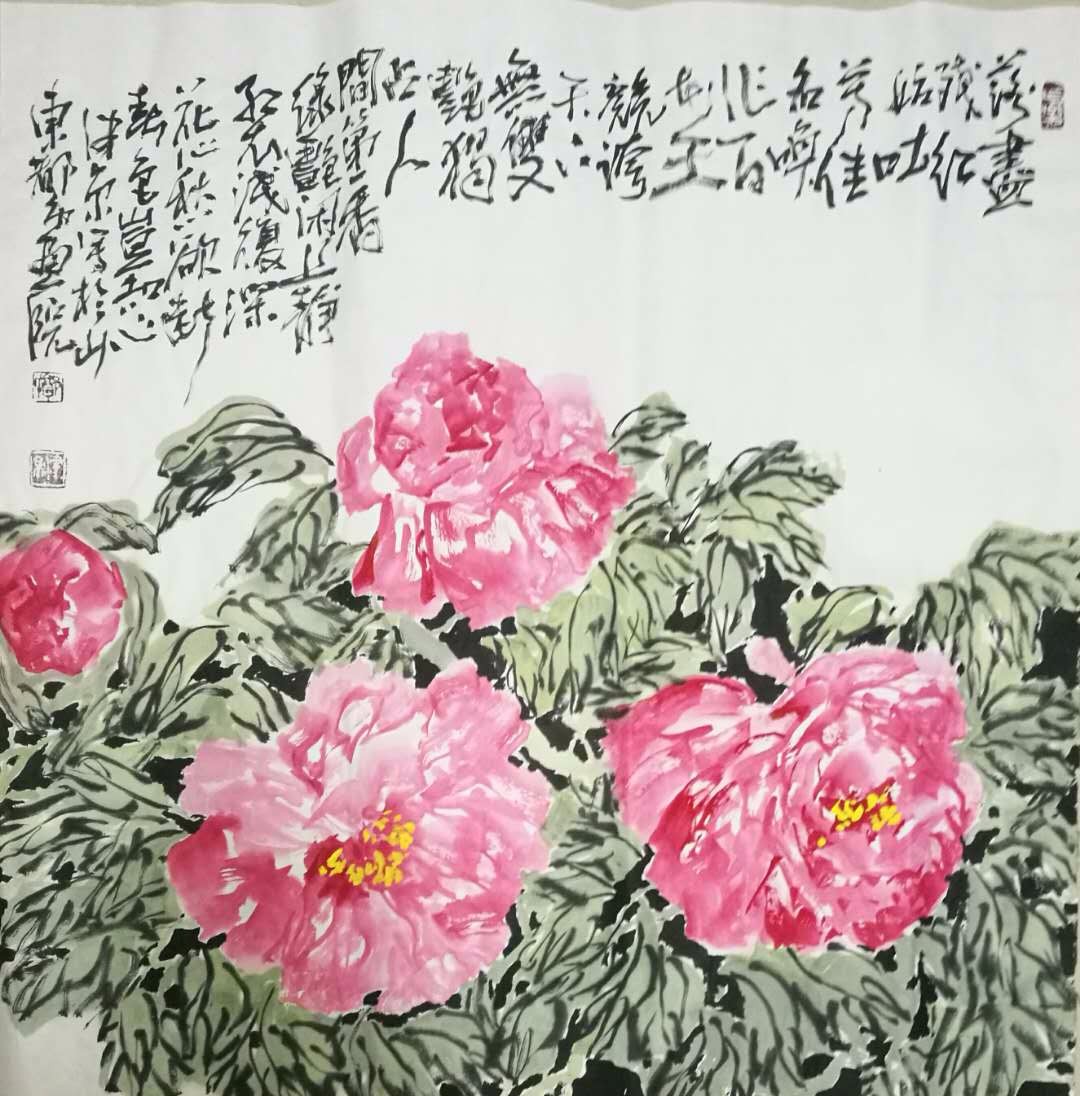 落盡
殘紅
始吐
芳佳
名喚
作百
花王
競誇
天下
無雙
艷獨
占人
間第一香
綠艷闲且靜
红衣浅復深
花心愁欲断
春色豈知心
寫於山
東都市画院